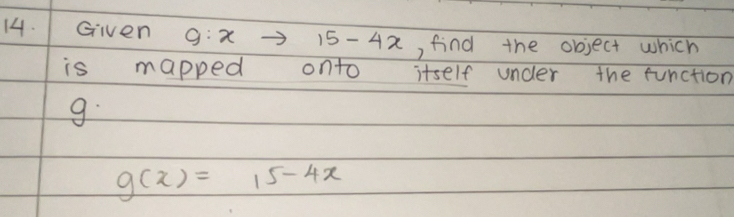 14. Given g:x → 15-4x, find the object which
is mapped onto itself under the function
g.
g(x) = 15-4x